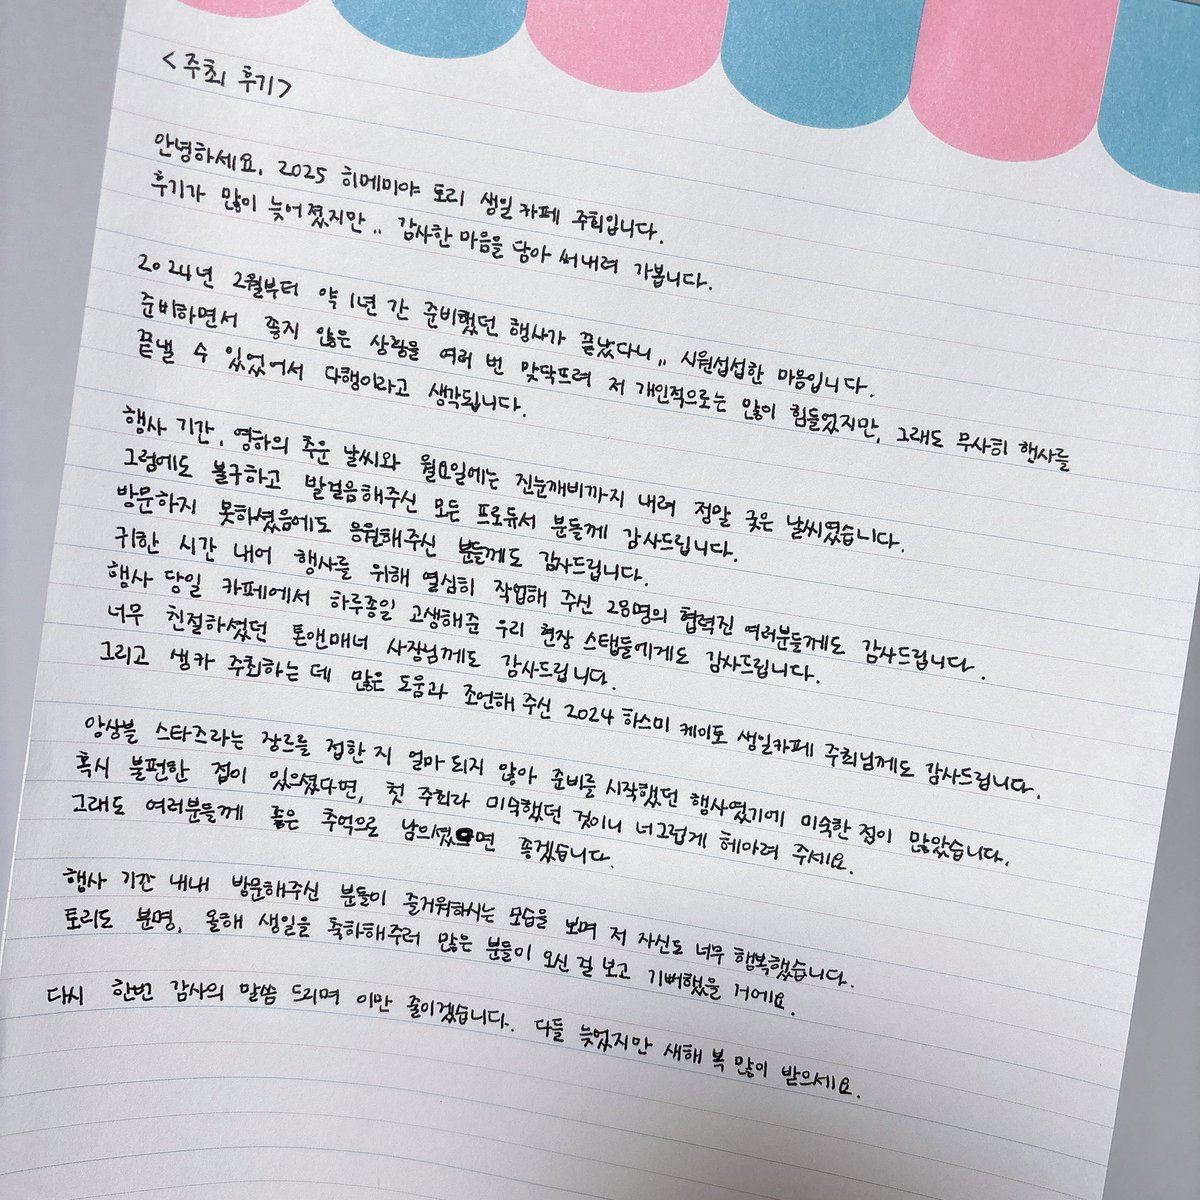 <주최 후기>
안녕하세요, 2025 히메미야 토리 생일카페 주최입니다.
후기가 많이 늦어졌지만.. 감사한 마음을 담아 써내려 가봅니다.
2024년 2월부터 약 1년 간 준비했던 행사가 끝났다니.. 시원섭섭한 마음입니다.
준비하면서 좋지 않은 상황을 여러 번 맞닥뜨려 저 개인적으로는 많이 힘들었지만, 그래도 무사히 행사를
끝낼 수 있었어서 다행이라고 생각됩니다.
행사 기간, 영하의 추운 날씨와 월요일에는 진눈깨비까지 내려 정말 궂은 날씨였습니다.
그럼에도 불구하고 발걸음해주신 모든 프로듀서 분들께 감사드립니다.
방문하지 못하셨음에도 응원해주신 분들께도 감사드립니다.
귀한 시간 내어 행사를 위해 열심히 작업해 주신 28명의 협력진 여러분들께도 감사드립니다.
행사 당일 카페에서 하루종일 고생해준 우리 현장 스탭들에게도 감사드립니다.
너무 친절하셨던 톤앤매너 사장님께도 감사드립니다.
그리고 생카 주최하는 데 많은 도움과 조언해 주신 2024 하스미 케이토 생일카페 주최님께도 감사드립니다.
앙상블 스타즈라는 장르를 접한 지 얼마 되지 않아 준비를 시작했던 행사였기에 미숙한 점이 많았습니다.
혹시 불편한 점이 있으셨다면, 첫 주최라 미숙했던 것이니 너그럽게 헤아려 주세요.
그래도 여러분들께 좋은 추억으로 남으셨으면 좋겠습니다.
행사 기간 내내 방문해주신 분들이 즐거워하시는 모습을 보며 저 자신도 너무 행복했습니다.
토리도 분명, 올해 생일을 축하해주러 많은 분들이 오신 걸 보고 기뻐했을 거에요.
다시 한번 감사의 말씀 드리며 이만 줄이겠습니다. 다들 늦었지만 새해 복 많이 받으세요.